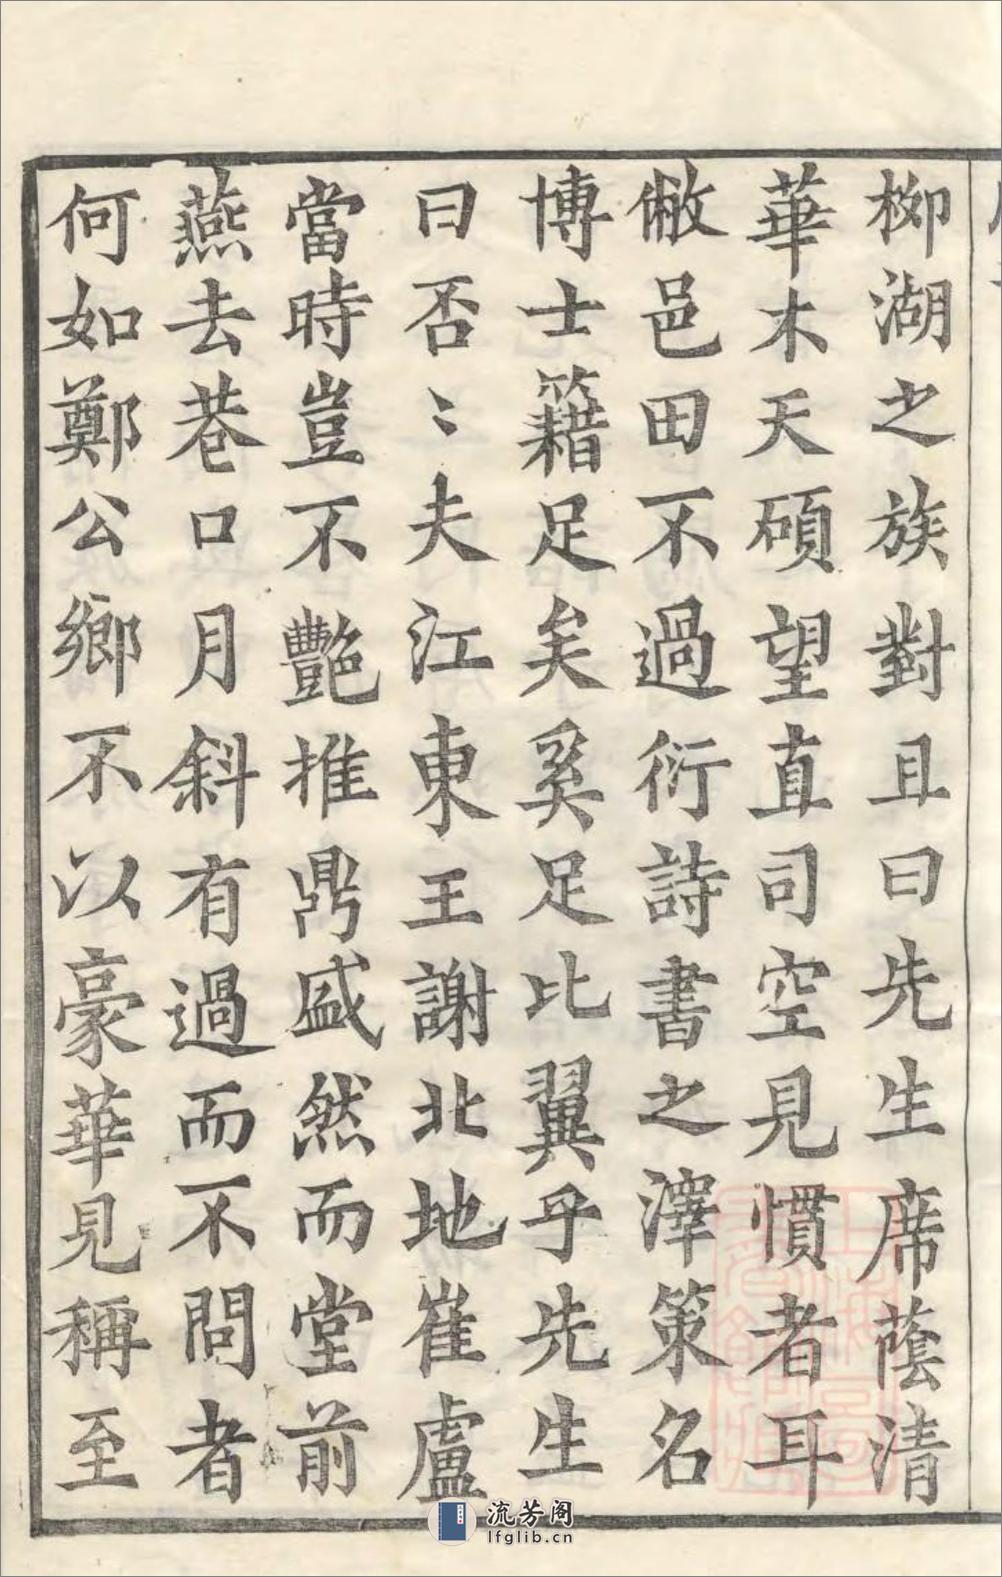 柳湖之族對且曰先生席蔭清
華木天碩望直司空見慣者耳
敝邑田不過衍詩書之澤策名
博士籍足矣奚足比翼乎先生
曰否〻夫江東王謝北地崔盧
當時豈不艷推鼎盛然而堂前
燕去巷口月斜有過而不問者
何如鄭公鄉不以豪華見稱至
流芳阁
lfglib.cn